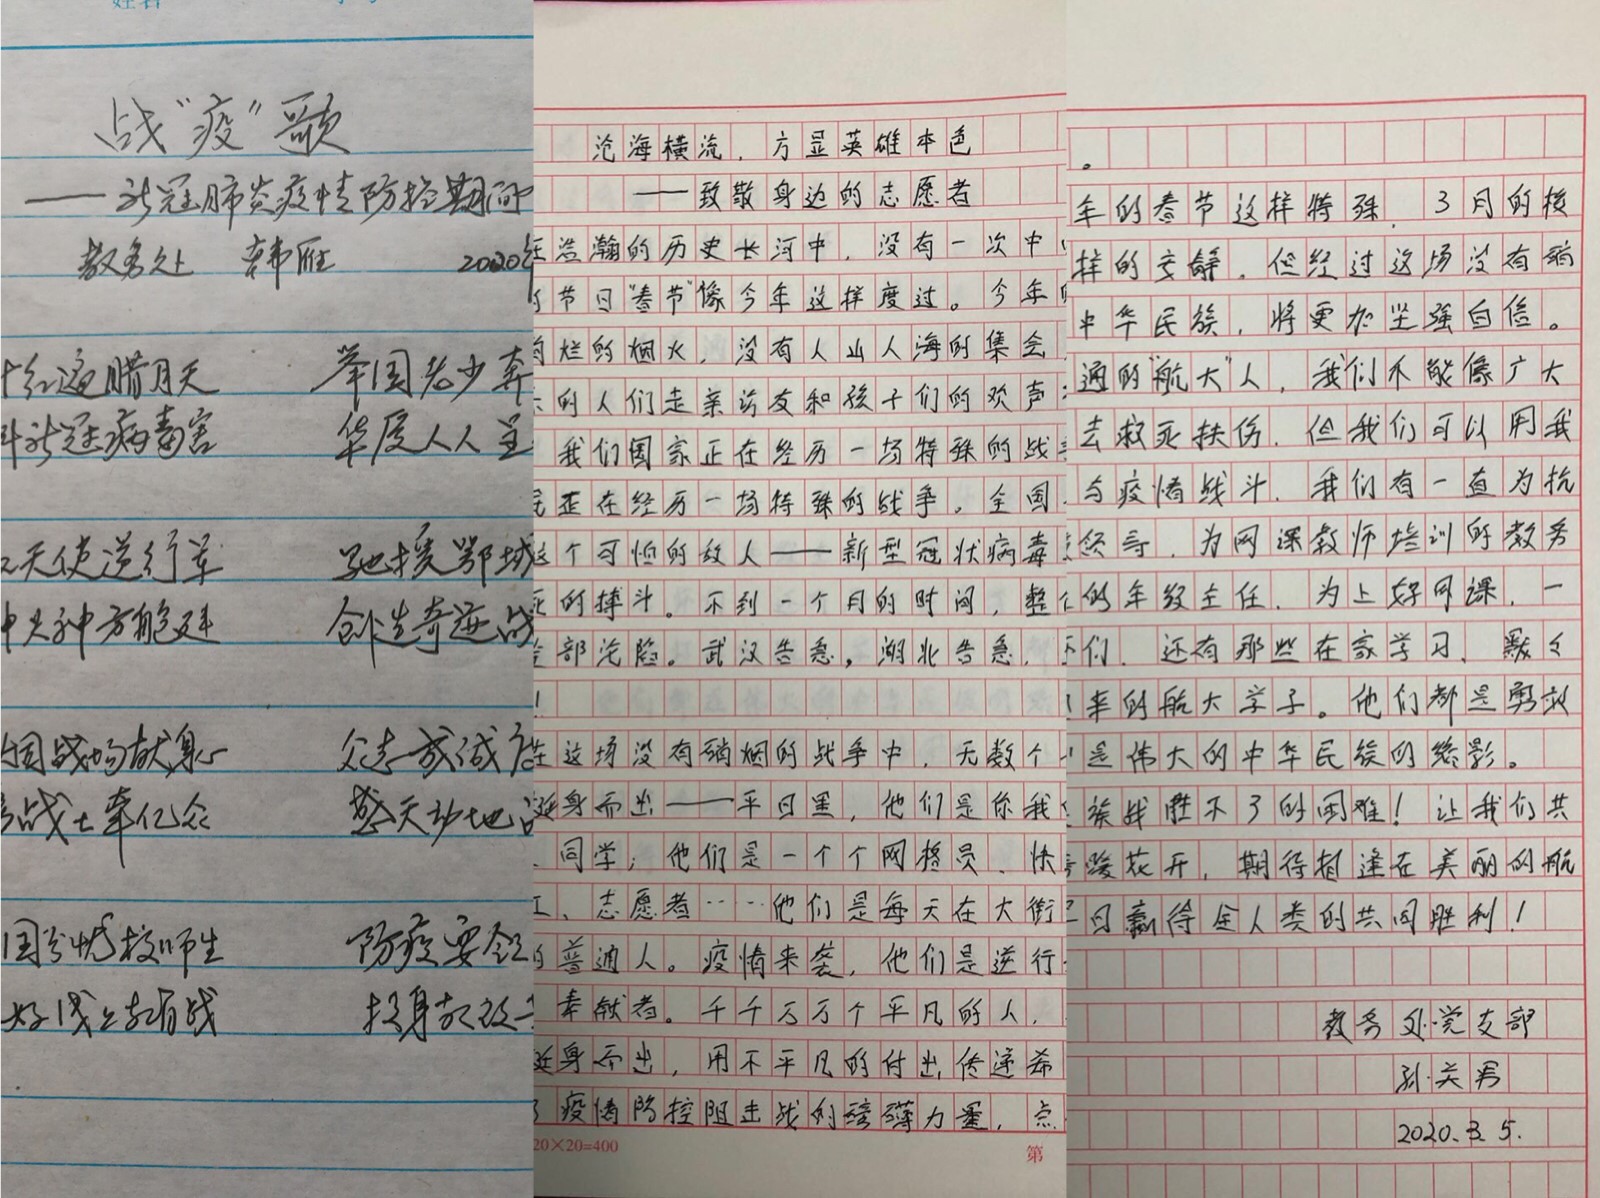 姓名
战“疫”歌
——新冠肺炎疫情防控期间
教务处 韩雁 2020年
红遍腊月天 举国老少奔
新冠病毒害 华厦人人呈
天使逆行军 驰援鄂城
方舱建 创造奇迹战
国战场献身心 众志成诚
战士牵亿众 感天动地
国分忧校师生 防疫要领
好线上教育战 投身教改一
沧海横流，方显英雄本色
——致敬身边的志愿者
在浩瀚的历史长河中，没有一次中
节日“春节”像今年这样度过。今年
烂的烟火，没有人山人海的集会
的人们走亲访友和孩子们的欢声
我们国家正在经历一场特殊的战
正在经历一场特殊的战争。全国
这个可怕的敌人——新型冠状病毒
死的搏斗。不到一个月的时间，整个
全部沦陷。武汉告急，湖北告急，
！
在这场没有硝烟的战争中，无数个
挺身而出——平日里，他们是你我
、同学；他们是一个个网格员、快
工、志愿者……他们是每天在大街
的普通人。疫情来袭，他们是逆行
奉献者。千千万万个平凡的人，
挺身而出，用不平凡的付出传递希
了疫情防控阻击战的磅礴力量，点
20×20=400
第
。
年的春节这样特殊，3月的校
样的安静。但经过这场没有硝
中华民族，将更加坚强自信。
通的“航大”人，我们不能像广大
去救死扶伤，但我们可以用我
与疫情战斗。我们有一直为抗
领导，为网课教师培训的教务
的年级主任，为上好网课，一
们，还有那些在家学习、默々
来的航大学子。他们都是勇敢
是伟大的中华民族的缩影。
族战胜不了的困难！让我们共
暖花开，期待相逢在美丽的航
日赢得全人类的共同胜利！
教务处党支部
孙美男
2020.3.5.